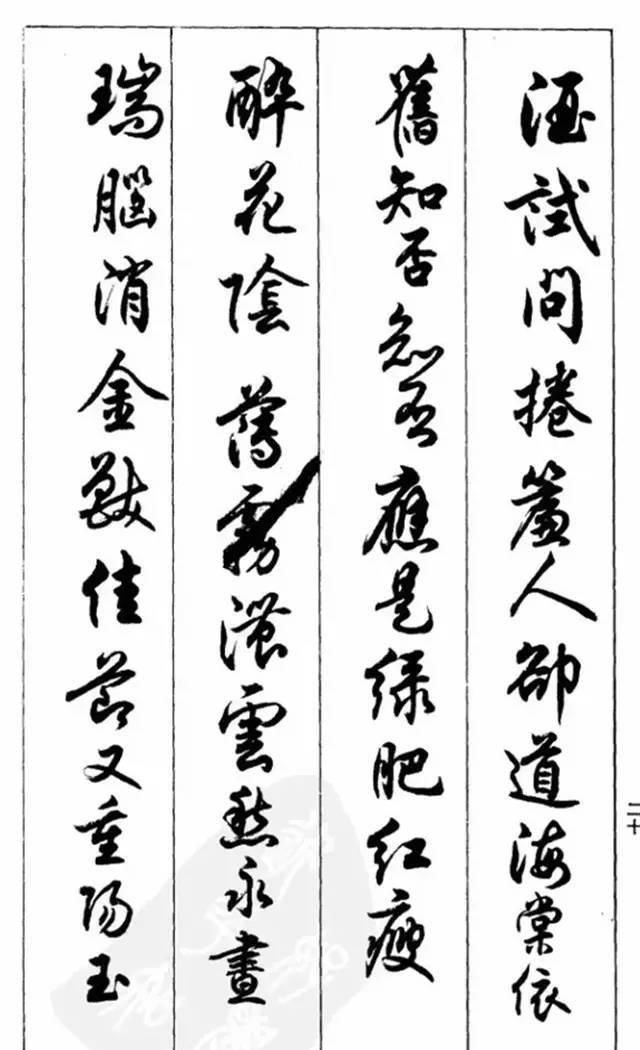 酒試問捲簾人卻道海棠依
舊知否知否應是緑肥紅瘦
醉花陰 薄霧濃雲愁永晝
瑞腦消金獸佳節又重陽玉
二十